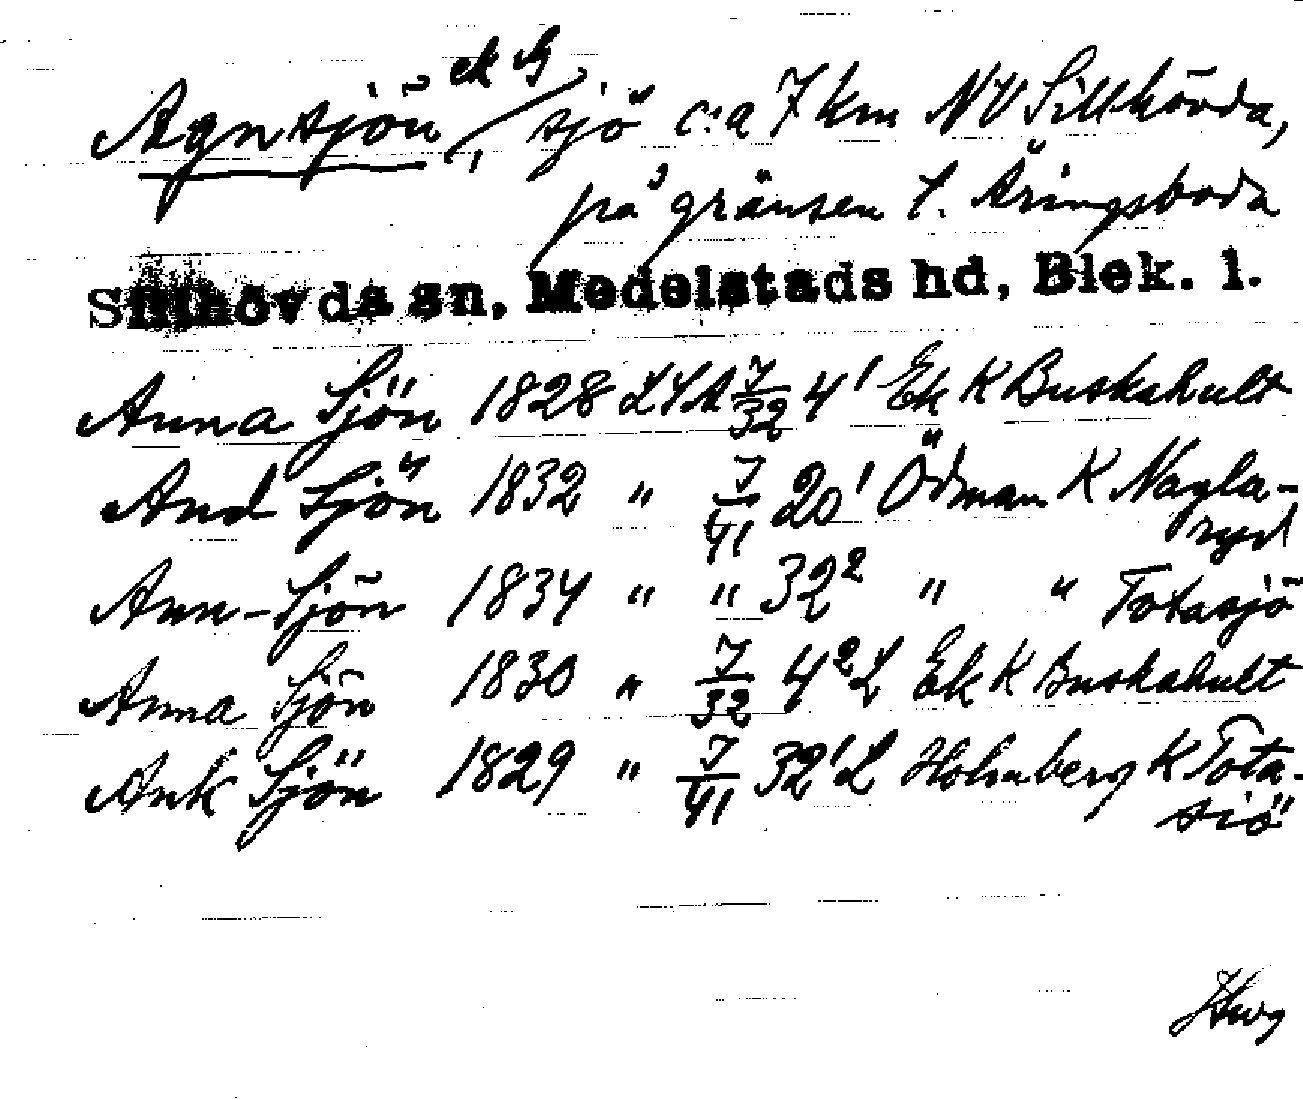 ek G
Agnsjön, sjö c:a 7 km NV Sillhövda,
på gränsen t. Äringsboda
Sillhövda sn, Medelstads hd, Blek. l.
Anna Sjön 1828 LSA 7/32 4¹ Ek K Buskahult
And Sjön 1832 " 7/41 20¹ Ödman K Nagla-
ryd
Ann-Sjön 1834 " " 32² " " Totasjö
Anna Sjön 1830 " 7/32 4² L Ek K Buskahult
Ank Sjön 1829 " 7/41 32¹ L Holmberg K Tota-
sjö